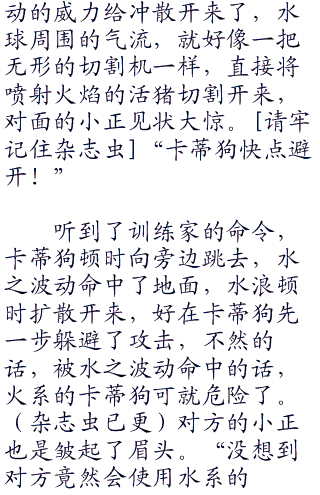 动的威力给冲散开来了，水
球周围的气流，就好像一把
无形的切割机一样，直接将
喷射火焰的活猪切割开来，
对面的小正见状大惊。[请牢
记住杂志虫]“卡蒂狗快点避
开！”
听到了训练家的命令，
卡蒂狗顿时向旁边跳去，水
之波动命中了地面，水浪顿
时扩散开来，好在卡蒂狗先
一步躲避了攻击，不然的
话，被水之波动命中的话，
火系的卡蒂狗可就危险了。
（杂志虫已更）对方的小正
也是皱起了眉头。“没想到
对方竟然会使用水系的